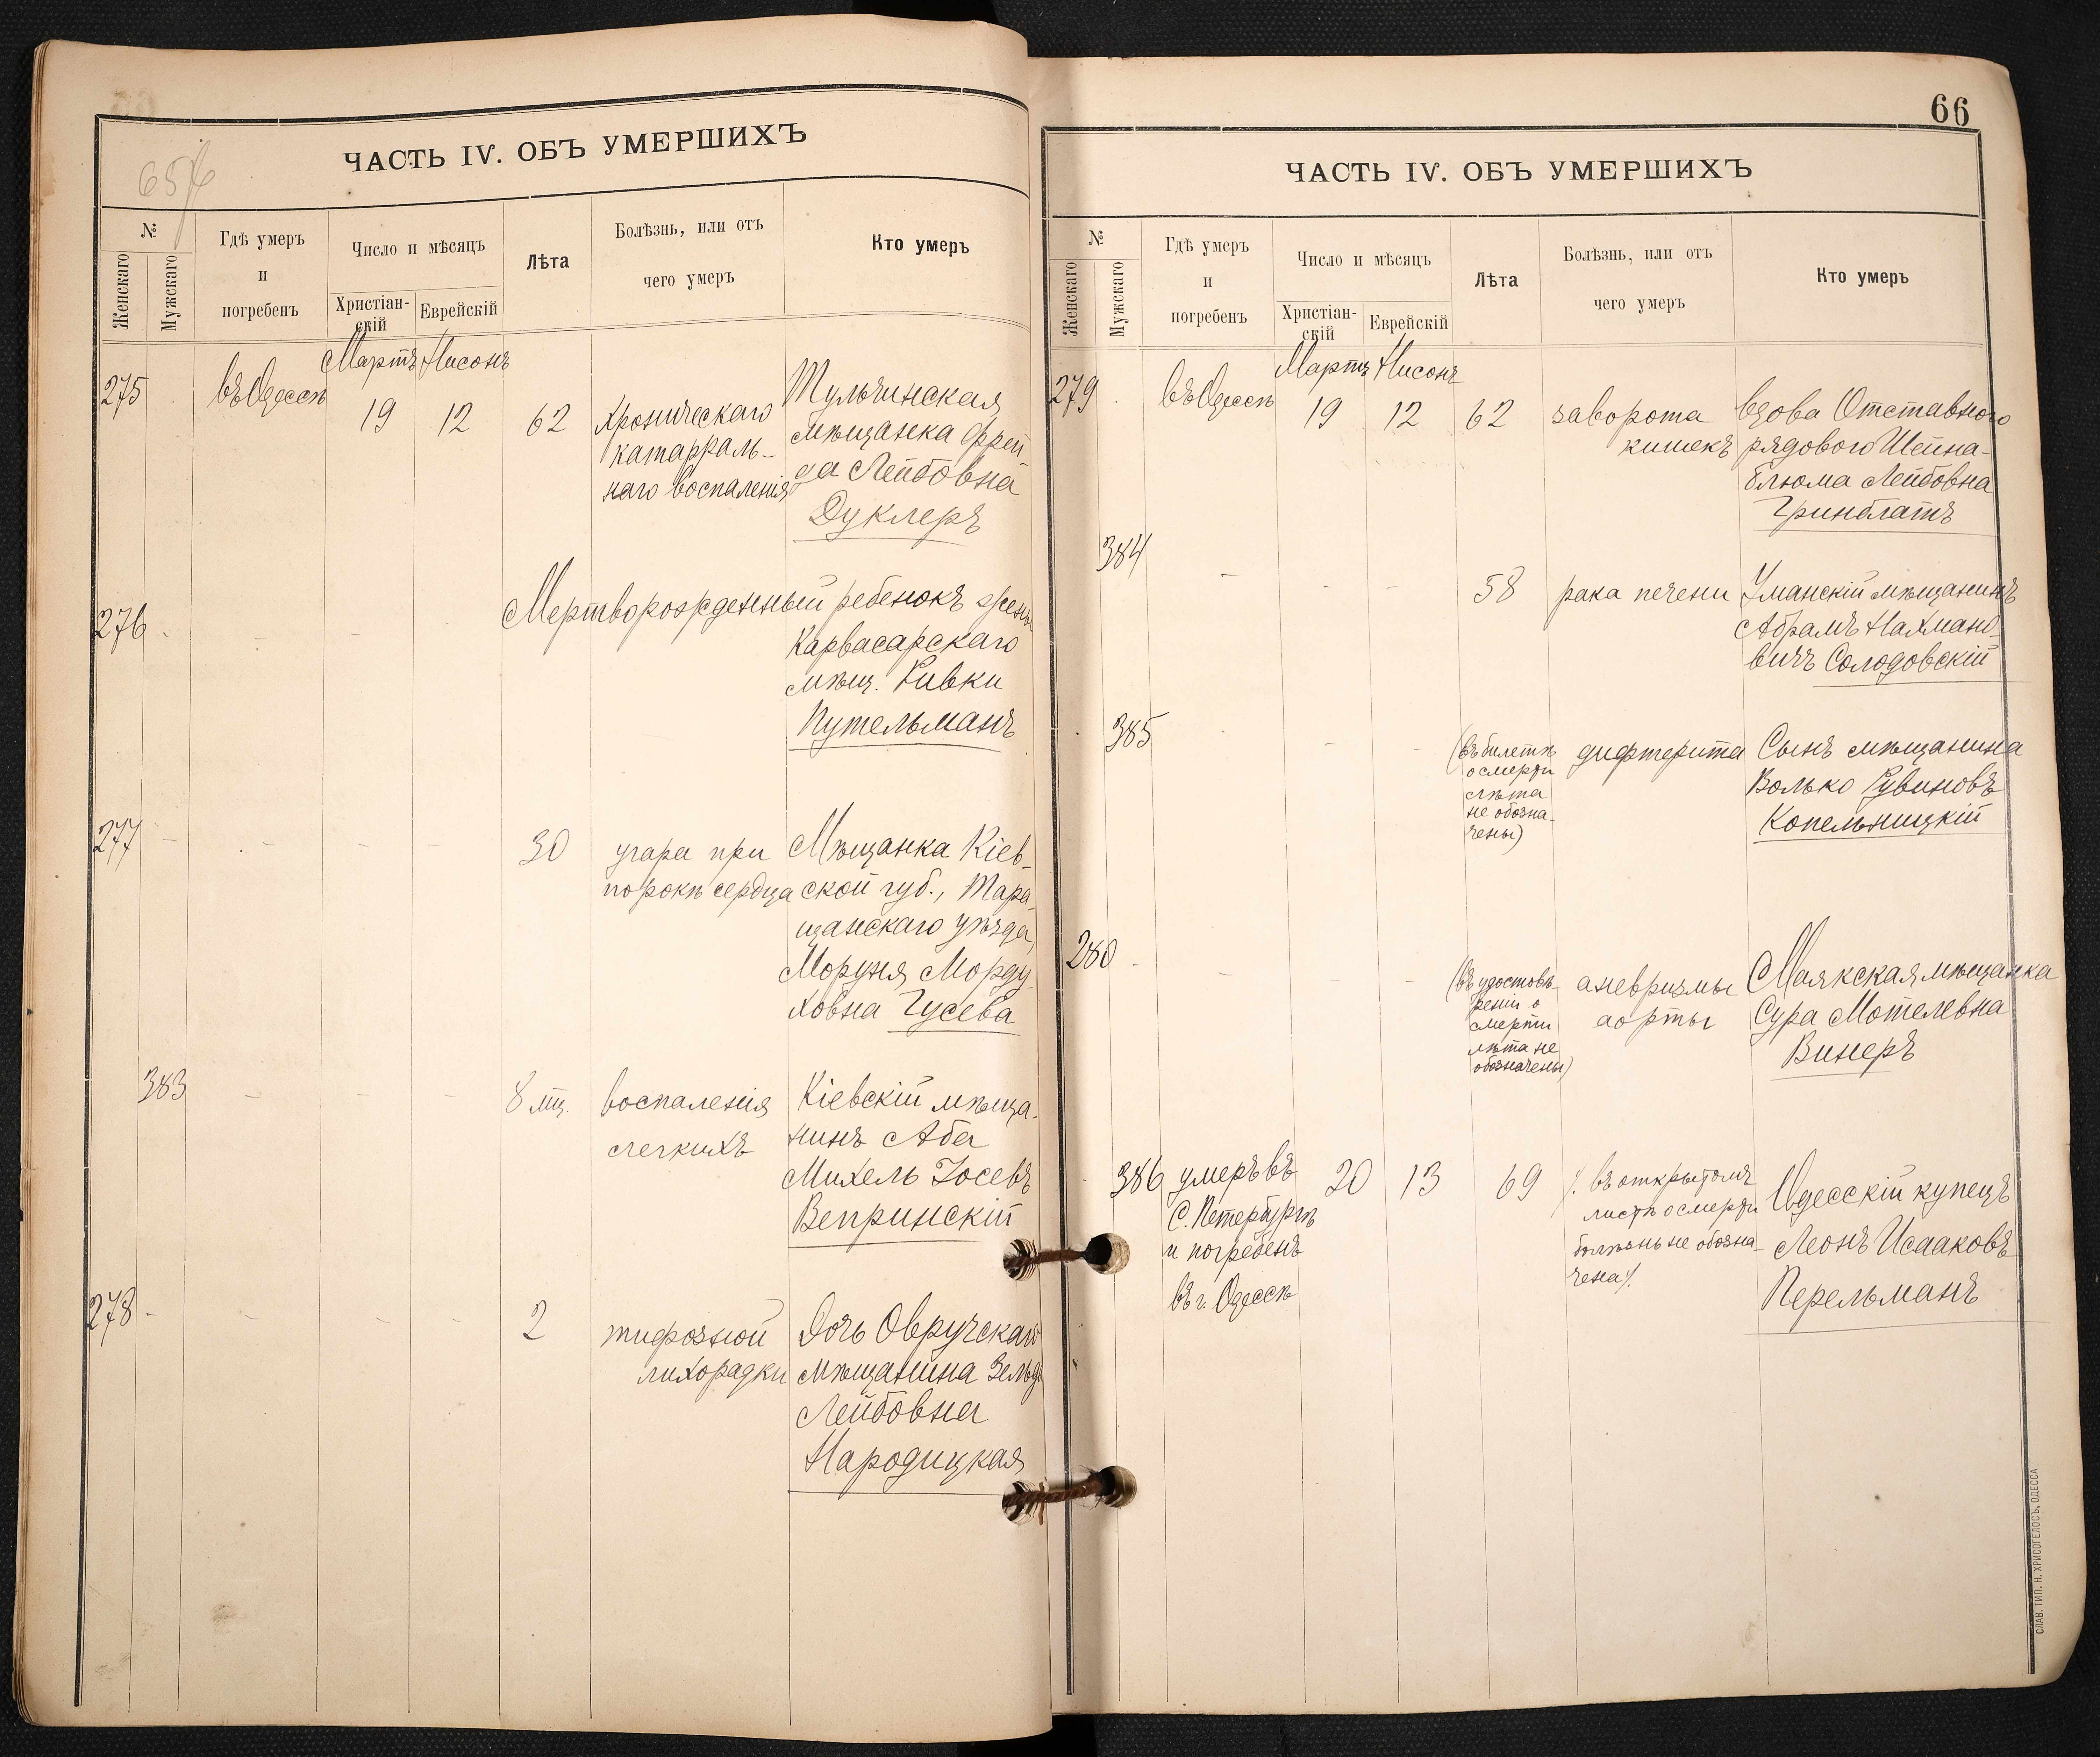 656
ЧАСТЬ IV. ОБЪ УМЕРШИХЪ
№
Женскаго
Мужскаго
Гдѣ умеръ
и
погребенъ
Число и мѣсяцъ
Христіан-
скій
Еврейскій
Лѣта
Болѣзнь, или отъ
чего умеръ
Кто умеръ
Мартъ Нисонъ
275 въ Одессѣ 19 12 62 Хроническаго Тульчинская
катарраль- мѣщанка Фрей
наго воспаленія да Лейбовна
Дуклеръ
276 - - - Мертворожденный ребенокъ жены
Карвасарскаго
мѣщ. Ривки
Путельманъ
277 - - - 30 угара при Мѣщанка Кіев-
порокѣ сердца ской губ., Тара-
щанскаго уѣзда,
Моруня Морду
ховна Гусева
383 - - - 8 мц. воспаленія Кіевскій мѣща-
легкихъ нинъ Аба
Михель Іосевъ
Вепринскій
278 - - - 2 тифозной Дочь Овручскаго
лихорадки мѣщанина Зельда
Лейбовна
Народицкая
66
ЧАСТЬ IV. ОБЪ УМЕРШИХЪ
№
Женскаго
Мужскаго
Гдѣ умеръ
и
погребенъ
Число и мѣсяцъ
Христіан-
скій
Еврейскій
Лѣта
Болѣзнь, или отъ
чего умеръ
Кто умеръ
Мартъ Нисонъ
279 въ Одессѣ 19 12 62 заворота вдова Отставного
кишекъ рядового Шейна-
блюма Лейбовна
Гринблатъ
384 - - - 58 рака печени Уманскій мѣщанинъ
Абрамъ Нахмано-
вичъ Солодовскій
385 - - (въ билетѣ дифтерита Сынъ мѣщанина
о смерти
лѣта Волько Рувиновъ
не обозна-
чены) Копельницкій
280 - - - (въ удостовѣ- аневризмы Маякская мѣщанка
реніи о
смерти аорты Сура Мотелевна
лѣта не Винеръ
обозначены)
386 умеръ въ 20 13 69 /. въ открытомъ Одесскій купецъ
С. Петербургѣ листѣ о смерти
и погребенъ болѣзнь не обозна- Леонъ Исааковъ
въ г. Одессѣ чена/. Перельманъ
СЛАВ. ТИП. Н. ХРИСОГЕЛОСЪ, ОДЕССА